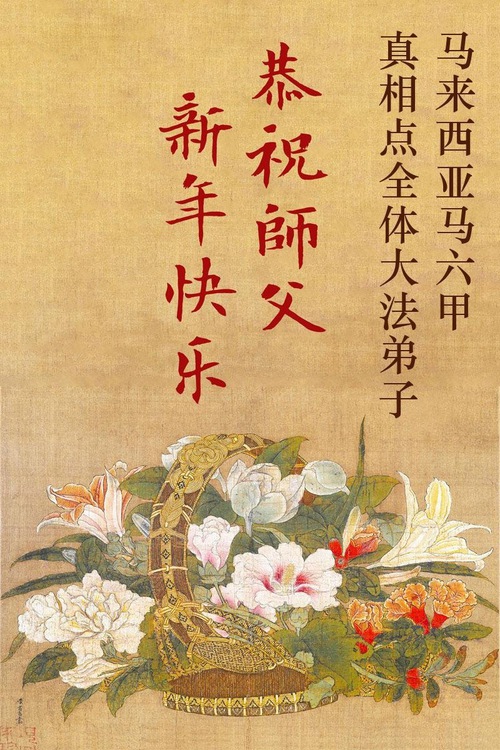 马来西亚马六甲
真相点全体大法弟子
恭祝師父
新年快乐